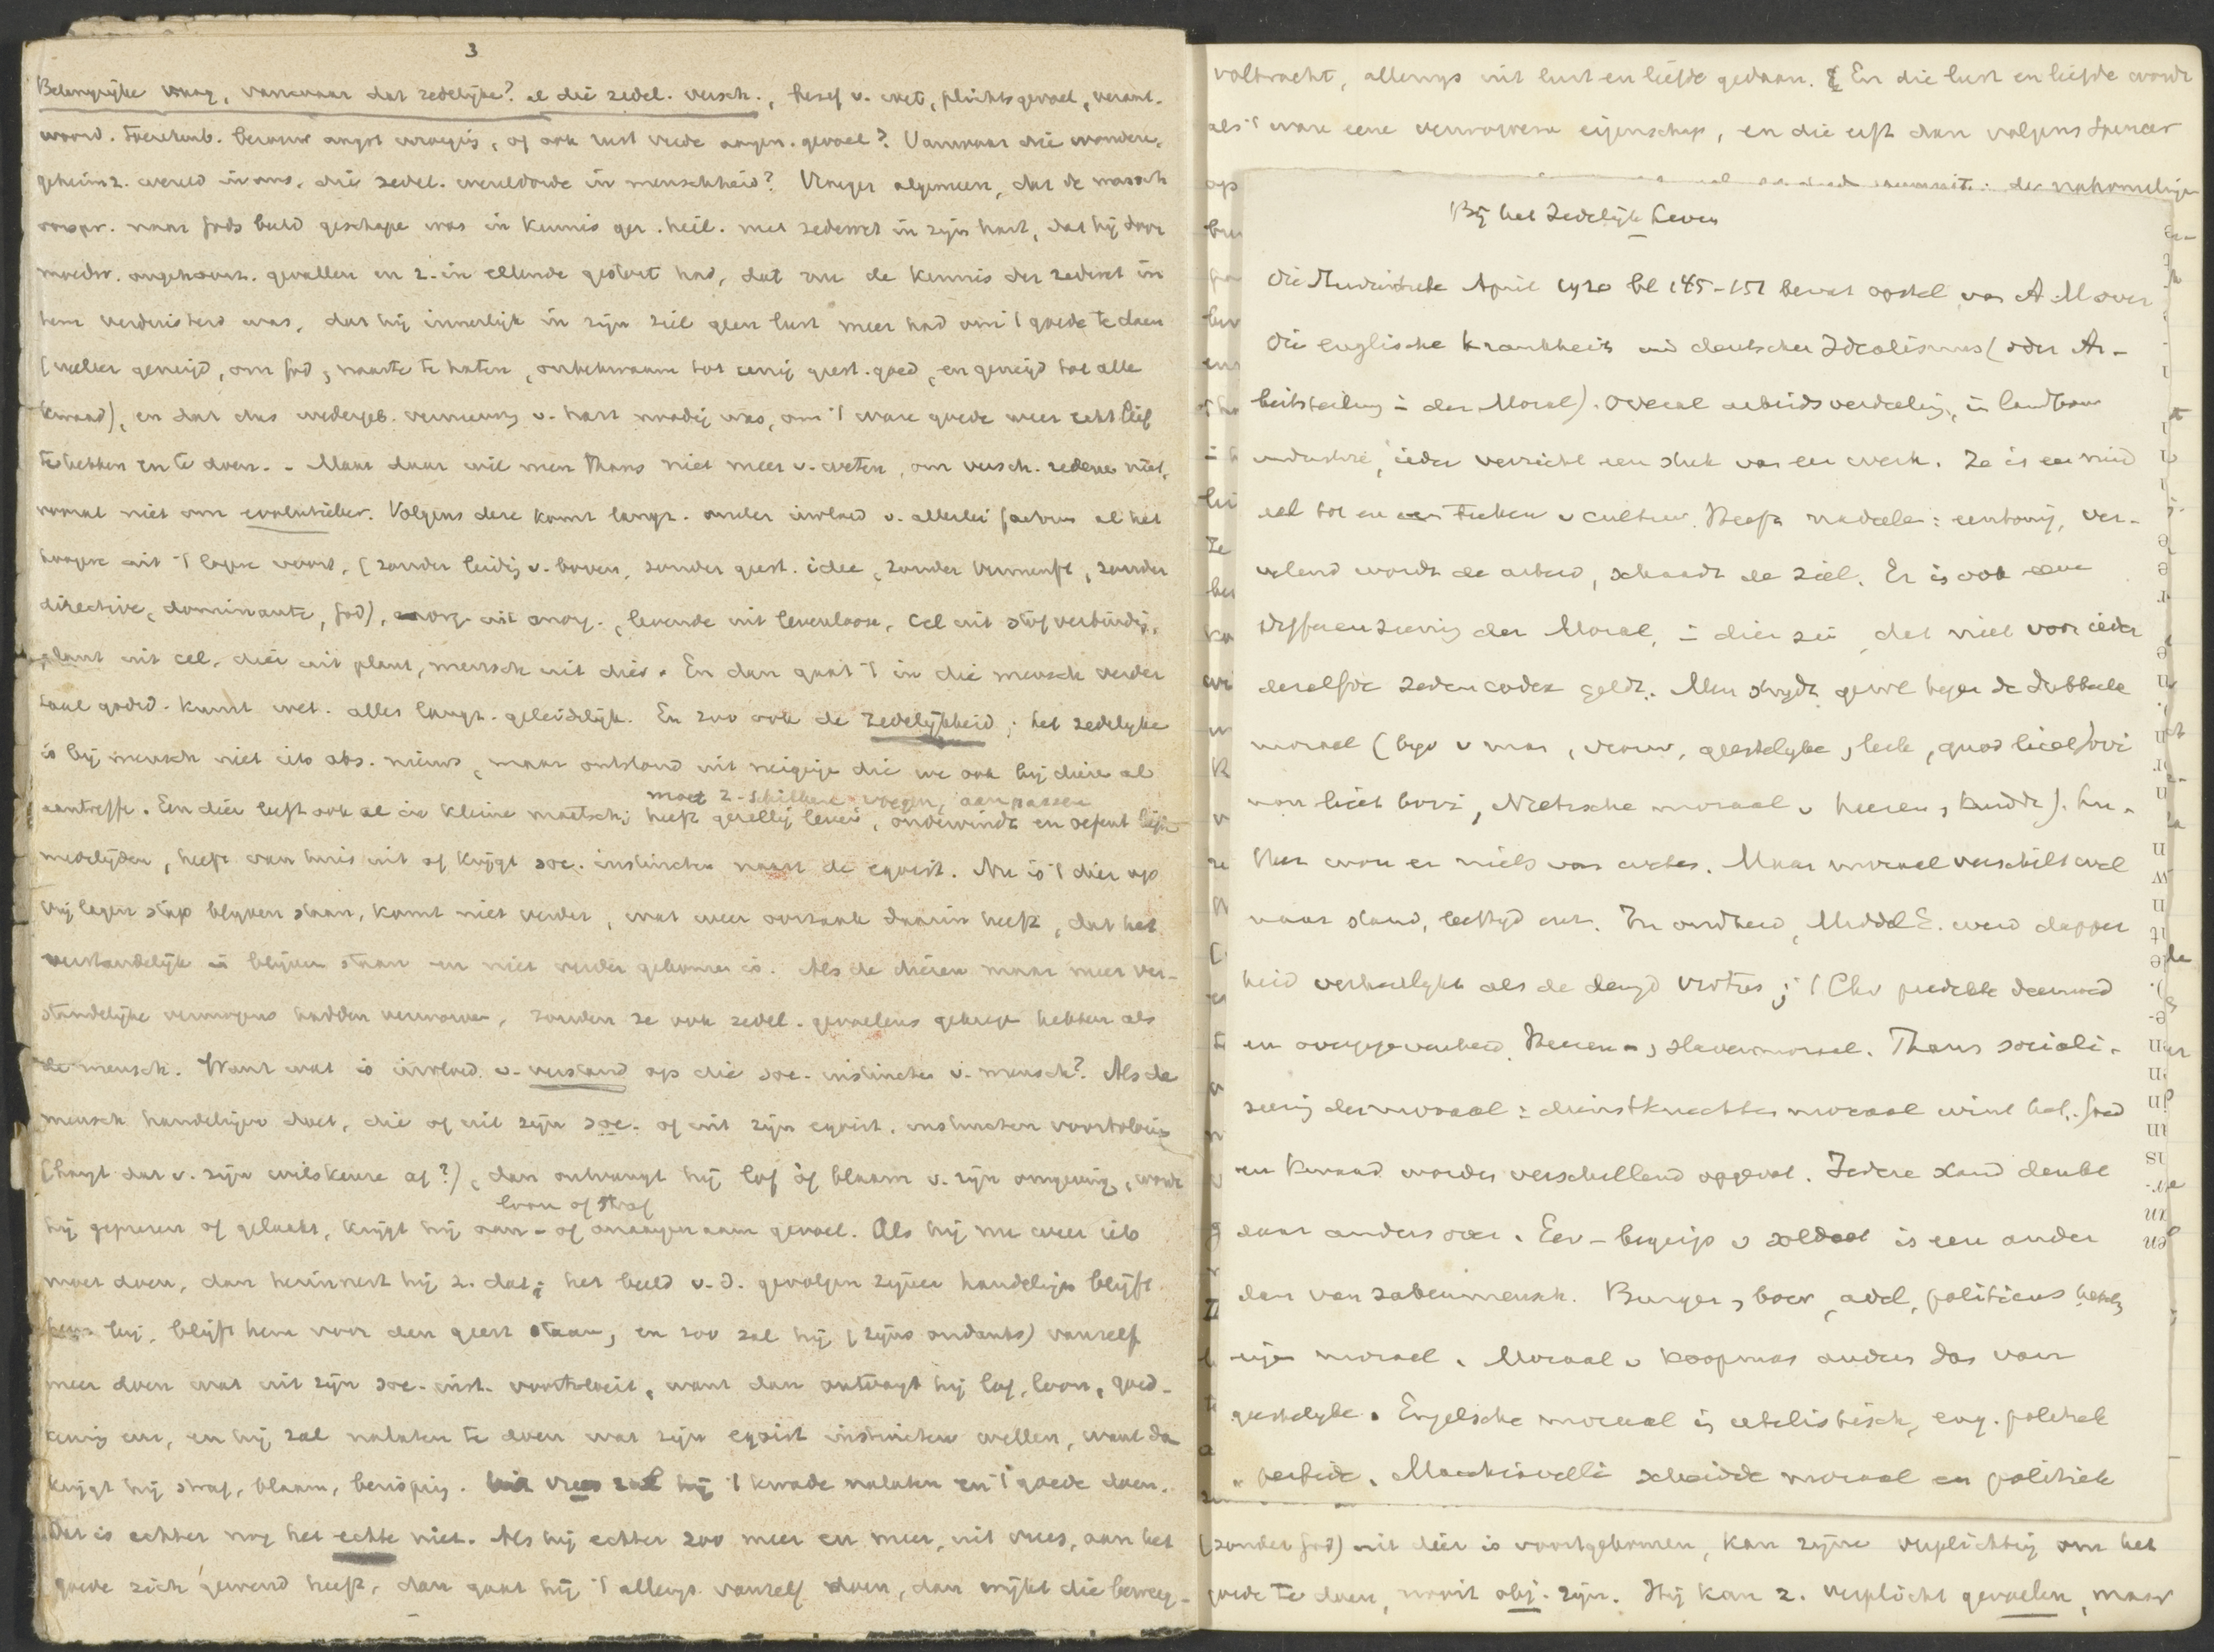 3
Belangrijke vraag, vanwaar dat zedelijke? al die zedel. versch., besef v. wet, plichtsgevoel, verant-
woord. toerekenb. berouw angst wroegig, of ook rust vrede aangen. gevoel? Vanwaar die wondere,
geheimz. wereld in ons, die zedel. wereldorde in menschheid? Vroeger algemeen, dat de mensch
oorspr. naar Gods beeld geschape was in kennis ger. heil. met zedewet in zijn hart, dat hij door
moedw. ongehoorz. gevallen en z. in ellende gestort had, dat nu de kennis der zedewet in
hem verduisterd was, dat hij innerlijk in zijn ziel geen lust meer had om 't goede te doen
(veeleer geneigd, om God, naaste te haten, onbekwaam tot eenig geest. goed, en geneigd tot alle
kwaad), en dat dus wedergeb. vernieuwg v. hart noodig was, om 't ware goede weer echt lief
te hebben en te doen. - Maar daar wil men thans niet meer v. weten, om versch. redene niet,
vooral niet om evolutieleer. Volgens deze komt langz. onder invloed v. allerlei factoren al het
hoogere uit 't lagere voort, (zonder leidig v. boven, zonder geest. idee, zonder Vernunft, zonder
directive, dominante, God), org. uit anorg., levende uit levenlooze, cel uit stofverbindig,
plant uit cel, dier uit plant, mensch uit dier. En dan gaat 't in die mensch verder
taal godsd. kunst wet. alles langz. geleidelijk. En zoo ook de zedelijkheid; het zedelijke
is bij mensch niet iets abs. nieuws, maar ontstond uit neigige die we ook bij diere al
moet z. schikken voegen, aanpassen
aantreffe. Een dier leeft ook al in kleine maatschij heeft gezellig leven, ondervindt en oefent liefde
medelijden, heeft van huis uit of krijgt soc. instincten naast de egoist. Nu is 't dier op
vrij lagen trap blijven staan, komt niet verder, wat weer oorzaak daarin heeft, dat het
verstandelijk is blijven staan en niet verder gekomen is. Als de dieren maar meer ver-
standelijke vermogens hadden verworven, zouden ze ook zedel. gevoelens gekrege hebben als
de mensch. Want wat is invloed v. verstand op die soc. instincten v. mensch? Als de
mensch handelingen doet, die of uit zijn soc. of uit zijn egoist. instincten voortvloeie
(hangt dat v. zijn wilskeure af?), dan ontvangt hij lof of blaam v. zijn omgeving, wordt
loon of straf
hij geprezen of gelaakt, krijgt hij aan- of onaangenaam gevoel. Als hij nu weer iets
moet doen, dan herinnert hij z. dat; het beeld v. d. gevolgen zijner handelige blijft
hem bij, blijft hem voor den geest staan, en zoo zal hij (zijns ondanks) vanzelf
meer doen wat uit zijn soc. inst. voortvloeit, want dan ontvangt hij lof, loon, goed-
keurig enz, en hij zal nalaten te doen wat zijn egoist instincten willen, want dan
krijgt hij straf, blaam, berisping. Uit vrees zal hij 't kwade nalaten en 't goede doen.
Dat is echter nog het echte niet. Als hij echter zoo meer en meer, uit vrees, aan het
goede zich gewend heeft, dan gaat hij 't allengs vanzelf doen, dan wijkt die beweeg-
volbracht, allengs uit lust en liefde gedaan. En die lust en liefde wordt
als 't ware eene verworvene eigenschap, en die erft dan volgens Spencer
Bij het Zedelijke Leven
Die Umschau April 1920 bl 145-151 bevat opstel van A. M over
Die englische Krankheit und deutscher Idealismus (oder Ar-
beitsteilung in der Moral). Overal arbeidsverdeeling, in landbouw
industrie, ieder verricht een stuk van een werk. Ze is een mid
del tot en een teeken v cultuur. Heeft nadeelen: eentonig, ver-
velend wordt de arbeid, schaadt de ziel. Er is ook eene
differenzierung der Moral, in dien zin, dat niet voor ieder
derzelfde zedencodex geldt. Men strijdt gewl tegen de dubbele
moraal (bijv v man, vrouw, geestelijke, leek, quod licet Jovi
non licet bovi, Nietzsche moraal v heeren, kudde). Lu-
ther wou er niets van weten. Maar moraal verschilt wel
naar stand, leeftijd enz. In oudheid, Middel E. werd dapper
heid verheerlijkt als de deugd virtus; 't Chr predikte deemoed
en overgegevenheid. Heeren-, slavenmoraal. Thans sociali-
seering der moraal: dienstknechten moraal wint het. Goed
en kwaad worden verschillend opgevat. Iedere stand denkt
daar anders over. Eer-begrip v soldaat is een ander
dan van zakenmensch. Burger, boer, adel, politicus hebbn
eigen moraal. Moraal v koopman anders dan van
geestelijke. Engelsche moraal is utilistisch, eng. politiek
perfide. Macchiavelli scheidde moraal en politiek
(zonder God) uit dier is voortgekomen, kan zijne verplichting om het
goede te doen, nooit obj. zijn. Hij kan z. verplicht gevoelen, maar